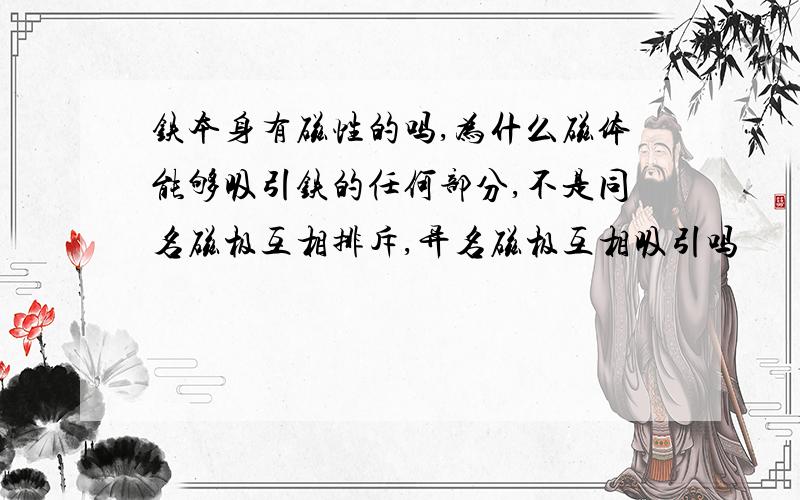 铁本身有磁性的吗,为什么磁体
能够吸引铁的任何部分,不是同
名磁极互相排斥,异名磁极互相吸引吗